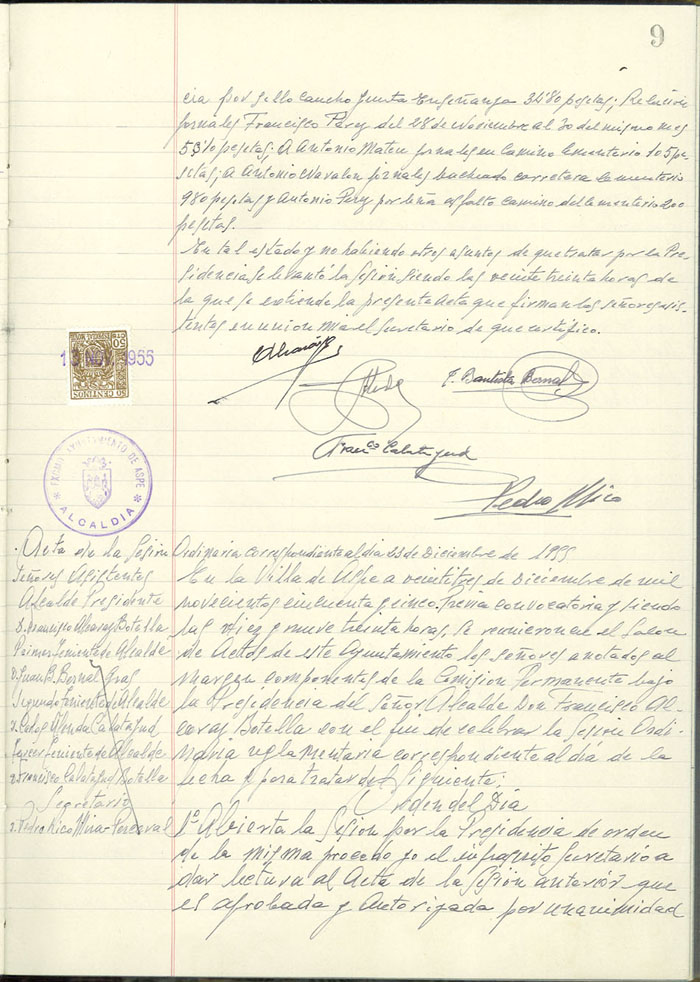 9
cia por sello caucho Junta Enseñanza 34'80 pesetas; Relación
jornales Francisco Perez del 28 de Noviembre al 30 del mismo mes
pesetas; A Antonio Mateu jornales en Camino Cementerio 105 pe
setas; a Antonio Navalon jornales bacheado carretera cementerio
980 pesetas y Antonio Perez por leña asfalto camino del cementerio 200
pesetas.
En tal estado y no habiendo otros asuntos de que tratar por la Pre-
sidencia se levantó la Sesión siendo las veinte treinta horas de
la que se extiende la presente Acta que firman los señores asis-
tentes en union mia el Secretario de que certifico.
50 CTS
50 CENTIMOS
13 NOV. 1955
J. Bautista Bernal
Franco Calatayud
Pedro Mico
EXCMO. AYUNTAMIENTO DE ASPE
* ALCALDIA *
Acta de la Sesión Ordinaria correspondiente al dia 23 de Diciembre de 1955
Señores Asistentes
Alcalde Presidente
D. Francisco Alcaraz Botella
Primer Teniente de Alcalde
D. Juan B. Bernal Gras
Segundo Teniente de Alcalde
D. Calatayud
Tercer Teniente de Alcalde
D. Francisco Calatayud Botella
Secretario
D. Pedro Mico Mira-Perceval
En la Villa de Aspe a veintitres de Diciembre de mil
novecientos cincuenta y cinco. Previa convocatoria y siendo
las diez y nueve treinta horas, se reunieron en el Salon
de Actos de este Ayuntamiento los señores anotados al
margen componentes de la Comision Permanente bajo
la Presidencia del Señor Alcalde Don Francisco Al-
caraz Botella con el fin de celebrar la Sesión Ordi-
naria reglamentaria correspondiente al dia de la
fecha y para tratar del siguiente;
Orden del Dia
1º Abierta la Sesión por la Presidencia de orden
de la misma procedo yo el infrascrito Secretario a
dar lectura al Acta de la Sesión anterior que
es aprobada y autorizada por unanimidad